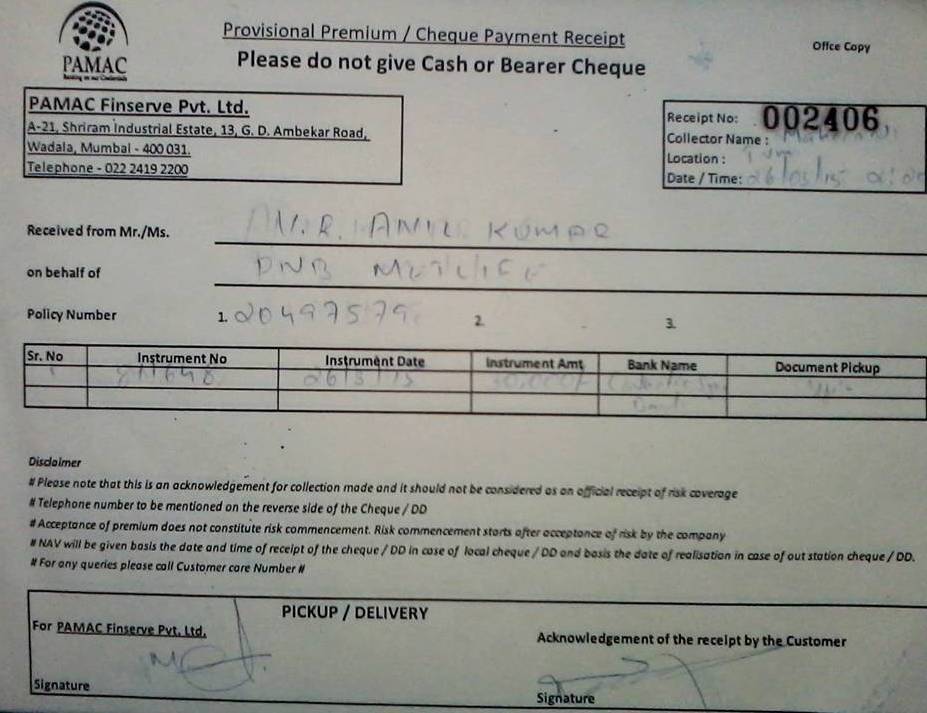 PAMAC
Provisional Premium / Cheque Payment Receipt
Please do not give Cash or Bearer Cheque
Offce Copy
PAMAC Finserve Pvt. Ltd.
A-21, Shriram Industrial Estate, 13, G. D. Ambekar Road,
Wadala, Mumbai - 400 031.
Telephone - 022 2419 2200
Receipt No: 002406
Collector Name :
Location :
Date / Time: 26/03/15
Received from Mr./Ms. N.R. ANIL KUMAR
on behalf of PNB METLIFE
Policy Number 1. 20497579 2. 3.
Sr. No Instrument No Instrument Date Instrument Amt Bank Name Document Pickup
1 26/3/15
Disclaimer
# Please note that this is an acknowledgement for collection made and it should not be considered as an official receipt of risk coverage
# Telephone number to be mentioned on the reverse side of the Cheque / DD
# Acceptance of premium does not constitute risk commencement. Risk commencement starts after acceptance of risk by the company
# NAV will be given basis the date and time of receipt of the cheque / DD in case of local cheque / DD and basis the date of realisation in case of out station cheque / DD.
# For any queries please call Customer care Number #
PICKUP / DELIVERY
For PAMAC Finserve Pvt. Ltd.
Acknowledgement of the receipt by the Customer
Signature
Signature